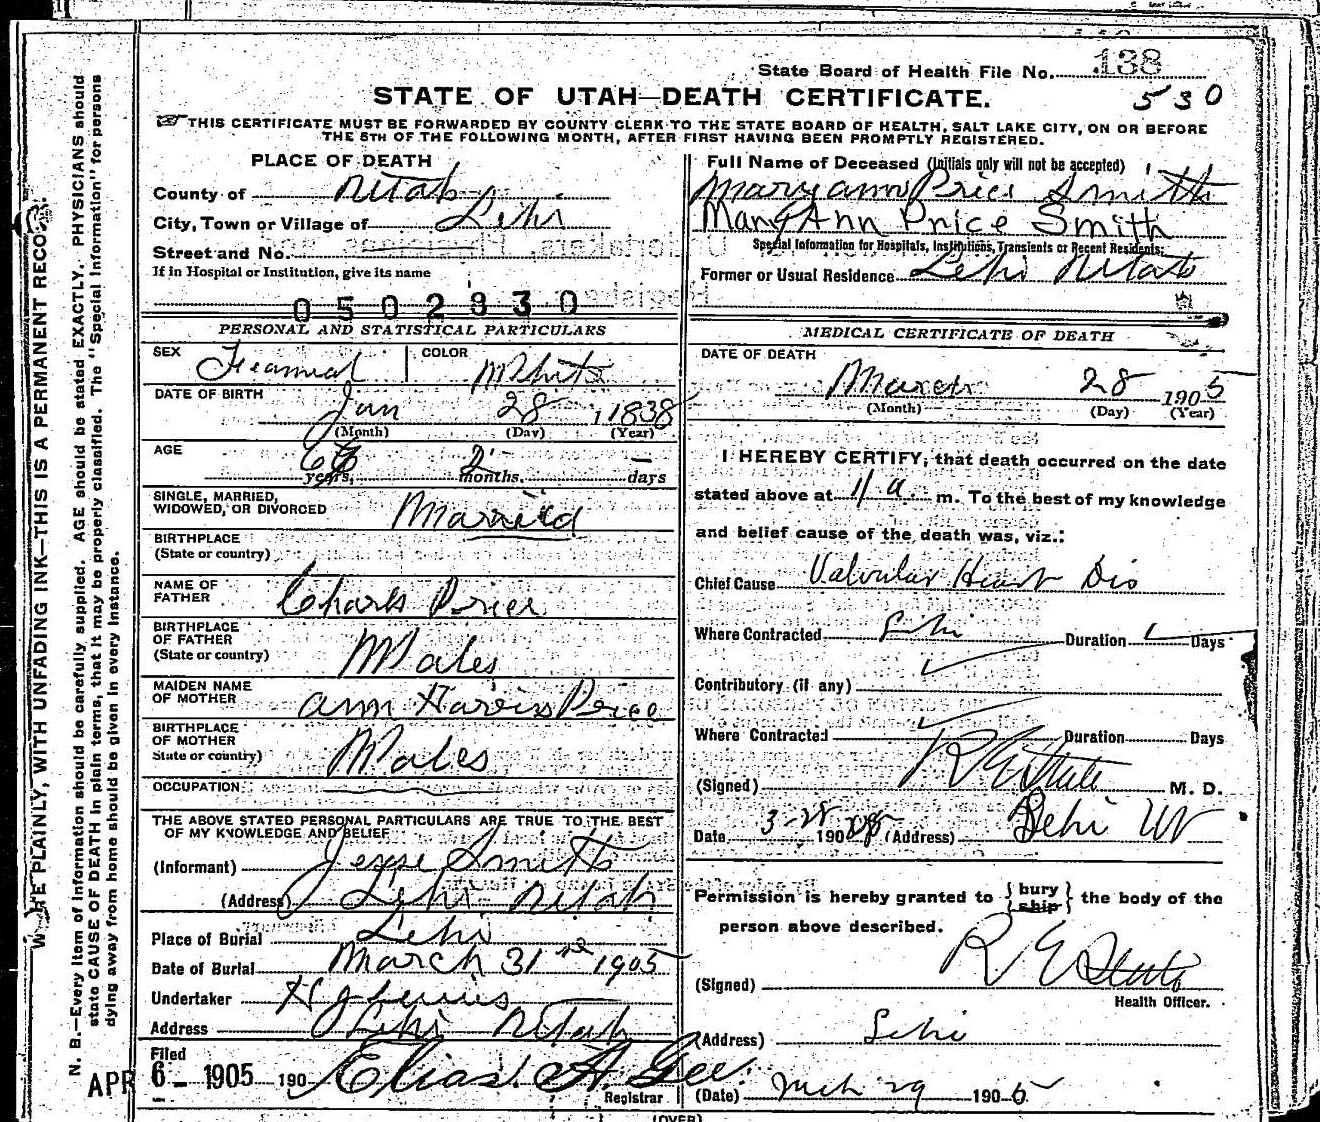 State Board of Health File No. 138
STATE OF UTAH—DEATH CERTIFICATE.
530
THIS CERTIFICATE MUST BE FORWARDED BY COUNTY CLERK TO THE STATE BOARD OF HEALTH, SALT LAKE CITY, ON OR BEFORE
THE 5TH OF THE FOLLOWING MONTH, AFTER FIRST HAVING BEEN PROMPTLY REGISTERED.
PLACE OF DEATH
County of Utah
City, Town or Village of Lehi
Street and No.
If in Hospital or Institution, give its name
0502830
Full Name of Deceased (Initials only will not be accepted)
Mary ann Price Smith
Mary Ann Price Smith
Special Information for Hospitals, Institutions, Transients or Recent Residents:
Former or Usual Residence Lehi Utah
PERSONAL AND STATISTICAL PARTICULARS
SEX Feamal COLOR White
DATE OF BIRTH
Jan 28 1838
(Month) (Day) (Year)
AGE
years, 2 months. — days
SINGLE, MARRIED,
WIDOWED, OR DIVORCED Married
BIRTHPLACE
(State or country)
NAME OF
FATHER Charls Price
BIRTHPLACE
OF FATHER
(State or country) Wales
MAIDEN NAME
OF MOTHER ann Harris Price
BIRTHPLACE
OF MOTHER
State or country) Wales
OCCUPATION
THE ABOVE STATED PERSONAL PARTICULARS ARE TRUE TO THE BEST
OF MY KNOWLEDGE AND BELIEF
(Informant) Jesse Smith
(Address) Lehi Utah
Place of Burial Lehi
Date of Burial March 31 1905
Undertaker
Address Lehi Utah
Filed
APR 6- 1905 190 Elias A. Gee.
Registrar
MEDICAL CERTIFICATE OF DEATH
DATE OF DEATH
March 28 1905
(Month) (Day) (Year)
I HEREBY CERTIFY, that death occurred on the date
stated above at 11 a m. To the best of my knowledge
and belief cause of the death was, viz.:
Chief Cause Valvular Heart Dis
Where Contracted Lehi Duration Days
Contributory (if any)
Where Contracted Duration Days
(Signed) R E Steele M. D.
Date 3-28 190 (Address) Lehi Ut
Permission is hereby granted to {bury ship} the body of the
person above described.
(Signed) R E Steele
Health Officer.
(Address) Lehi
(Date) Mch 29 1905
(OVER)
PLAINLY, WITH UNFADING INK—THIS IS A PERMANENT RECORD
N. B.—Every item of information should be carefully supplied. AGE should be stated EXACTLY. PHYSICIANS should
state CAUSE OF DEATH in plain terms, that it may be properly classified. The "Special Information" for persons
dying away from home should be given in every instance.